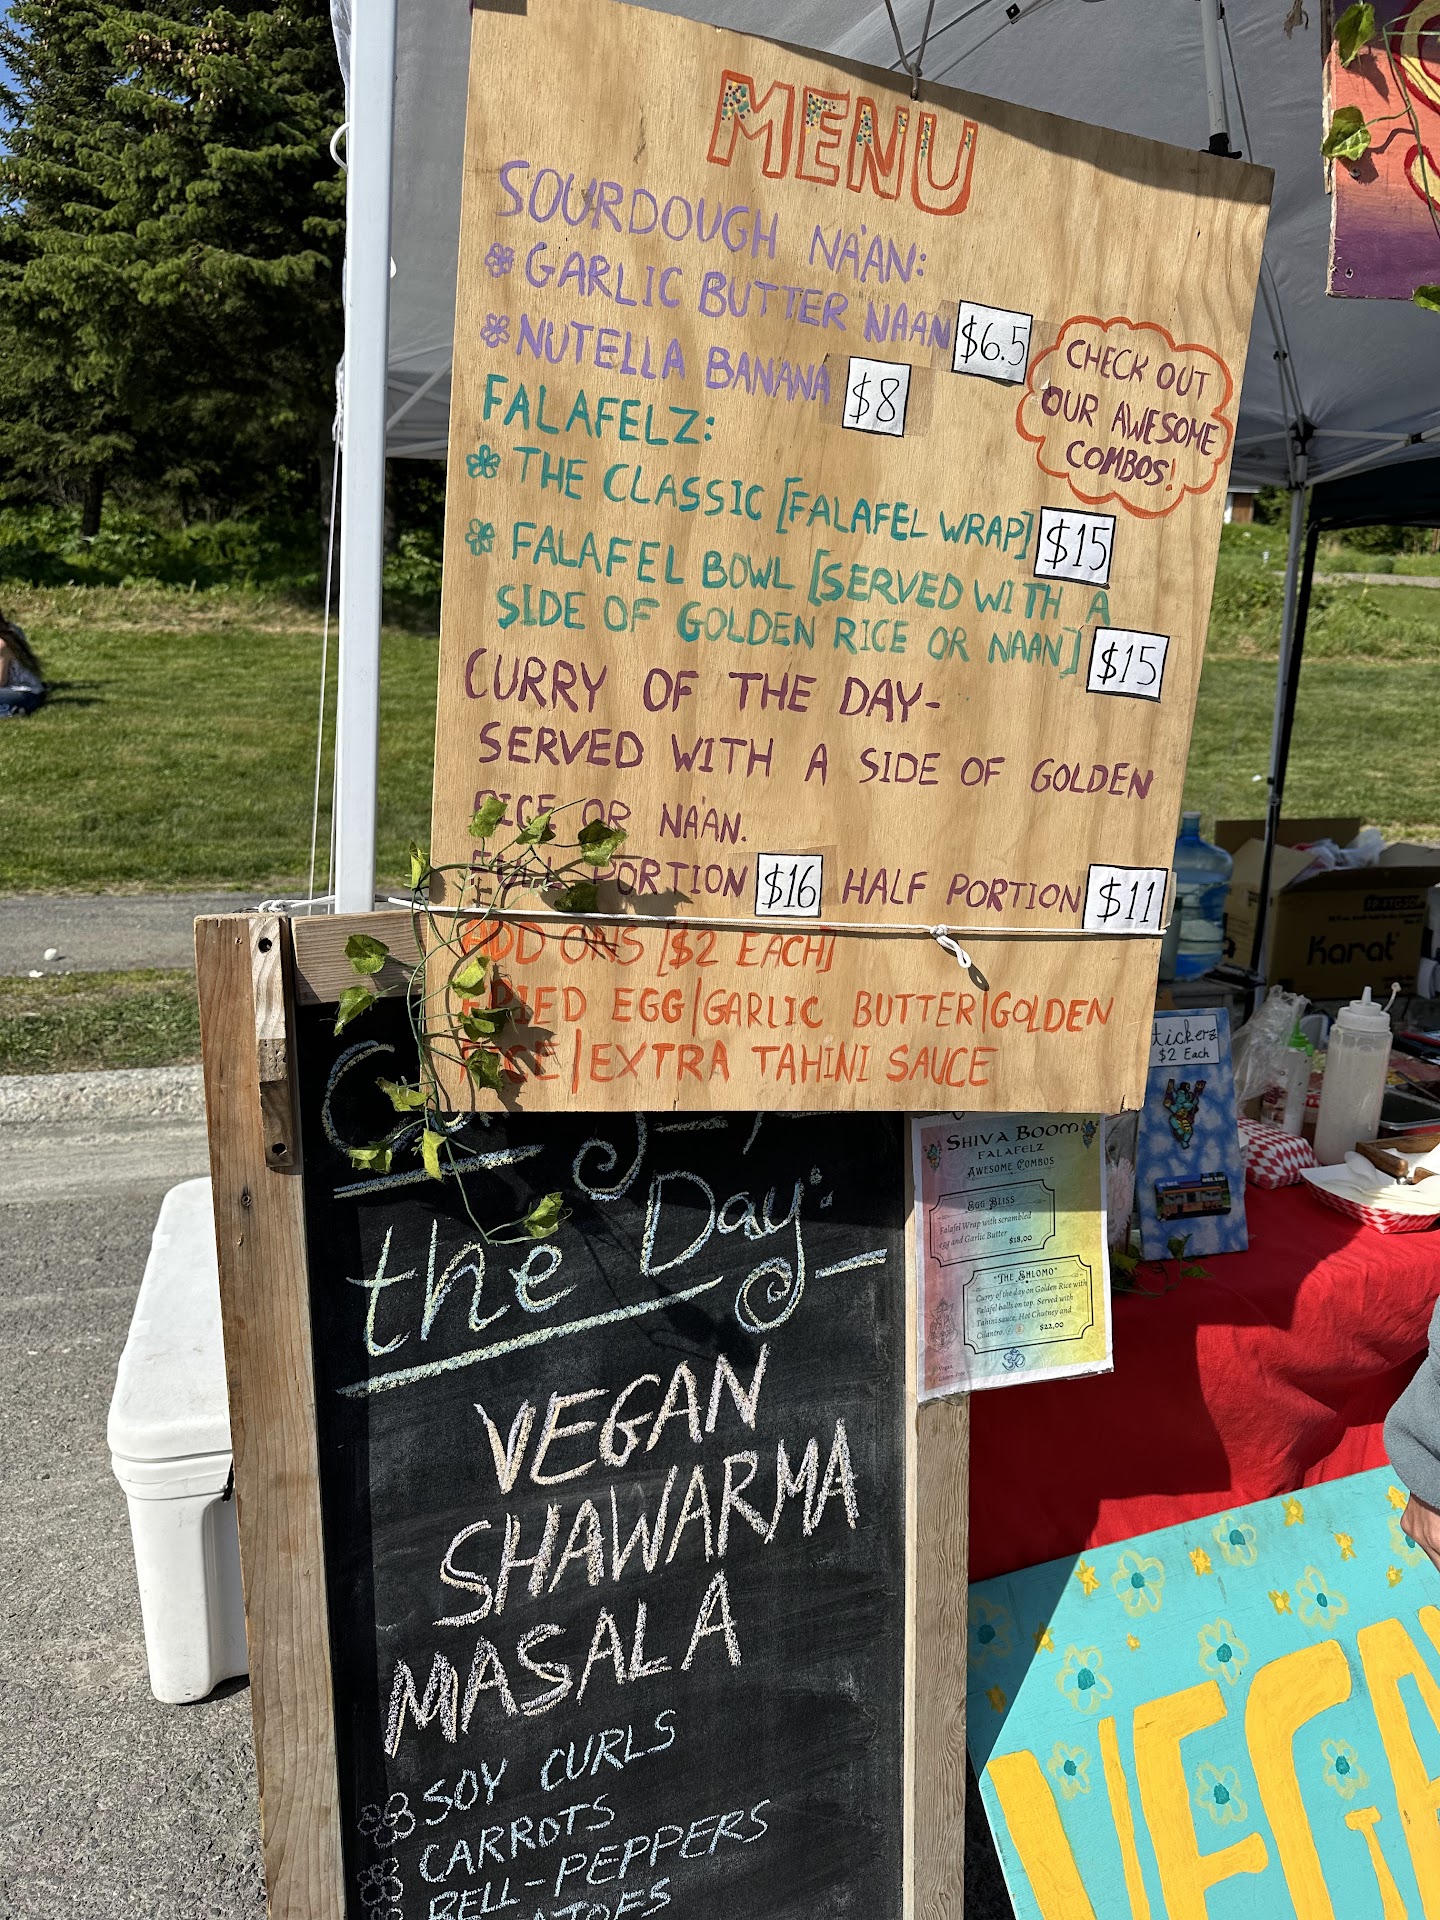 MENU
SOURDOUGH NA'AN:
GARLIC BUTTER NAAN $6.5
NUTELLA BANANA $8
CHECK OUT
OUR AWESOME
COMBOS!
FALAFELZ:
THE CLASSIC [FALAFEL WRAP] $15
FALAFEL BOWL [SERVED WITH A
SIDE OF GOLDEN RICE OR NAAN] $15
CURRY OF THE DAY-
SERVED WITH A SIDE OF GOLDEN
RICE OR NA'AN.
FULL PORTION $16 HALF PORTION $11
ADD ONS [$2 EACH]
FRIED EGG|GARLIC BUTTER|GOLDEN
RICE|EXTRA TAHINI SAUCE
the Day:
VEGAN
SHAWARMA
MASALA
SOY CURLS
CARROTS
BELL-PEPPERS
SHIVA BOOM
FALAFELZ
AWESOME COMBOS
EGG BLISS
Falafel Wrap with scrambled
egg and Garlic Butter $18,00
"THE SHLOMO"
Curry of the day on Golden Rice with
Falafel balls on top. Served with
Tahini sauce, Hot Chutney and
Cilantro. $22,00
tickerz
$2 Each
Karat
VEGA